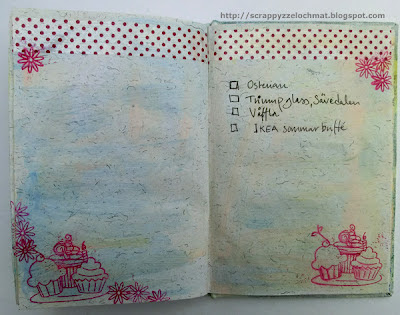 http://scrappyzzelochmat.blogspot.com
Ostenan
Triumpglass, Sävedalen
Våffla
IKEA sommarbuffé